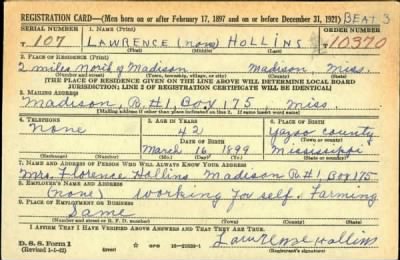 REGISTRATION CARD—(Men born on or after February 17, 1897 and on or before December 31, 1921) BEAT 3
SERIAL NUMBER 1. NAME (Print) ORDER NUMBER
T 107 LAWRENCE (none) HOLLINS 10370
(First) (Middle) (Last)
2. PLACE OF RESIDENCE (Print)
2 miles North of Madison Madison Miss.
(Number and street) (Town, township, village, or city) (County) (State)
[THE PLACE OF RESIDENCE GIVEN ON THE LINE ABOVE WILL DETERMINE LOCAL BOARD
JURISDICTION; LINE 2 OF REGISTRATION CERTIFICATE WILL BE IDENTICAL]
3. MAILING ADDRESS
Madison, R#1, Box 175, Miss
(Mailing address if other than place indicated on line 2. If same insert word same)
4. TELEPHONE 5. AGE IN YEARS 6. PLACE OF BIRTH
None 42 Yazoo County
DATE OF BIRTH (Town or county)
March 16 1899 Mississippi
(Mo.) (Day) (Yr.) (State or country)
7. NAME AND ADDRESS OF PERSON WHO WILL ALWAYS KNOW YOUR ADDRESS
Mrs. Florence Hollins Madison R#1 Box 175
8. EMPLOYER'S NAME AND ADDRESS
(none) working for self. Farming
9. PLACE OF EMPLOYMENT OR BUSINESS
Same
(Number and street or R. F. D. number) (Town) (County) (State)
I AFFIRM THAT I HAVE VERIFIED ABOVE ANSWERS AND THAT THEY ARE TRUE.
D. S. S. Form 1
(Revised 1-1-42) Lawrence Hollins
(Registrant's signature)